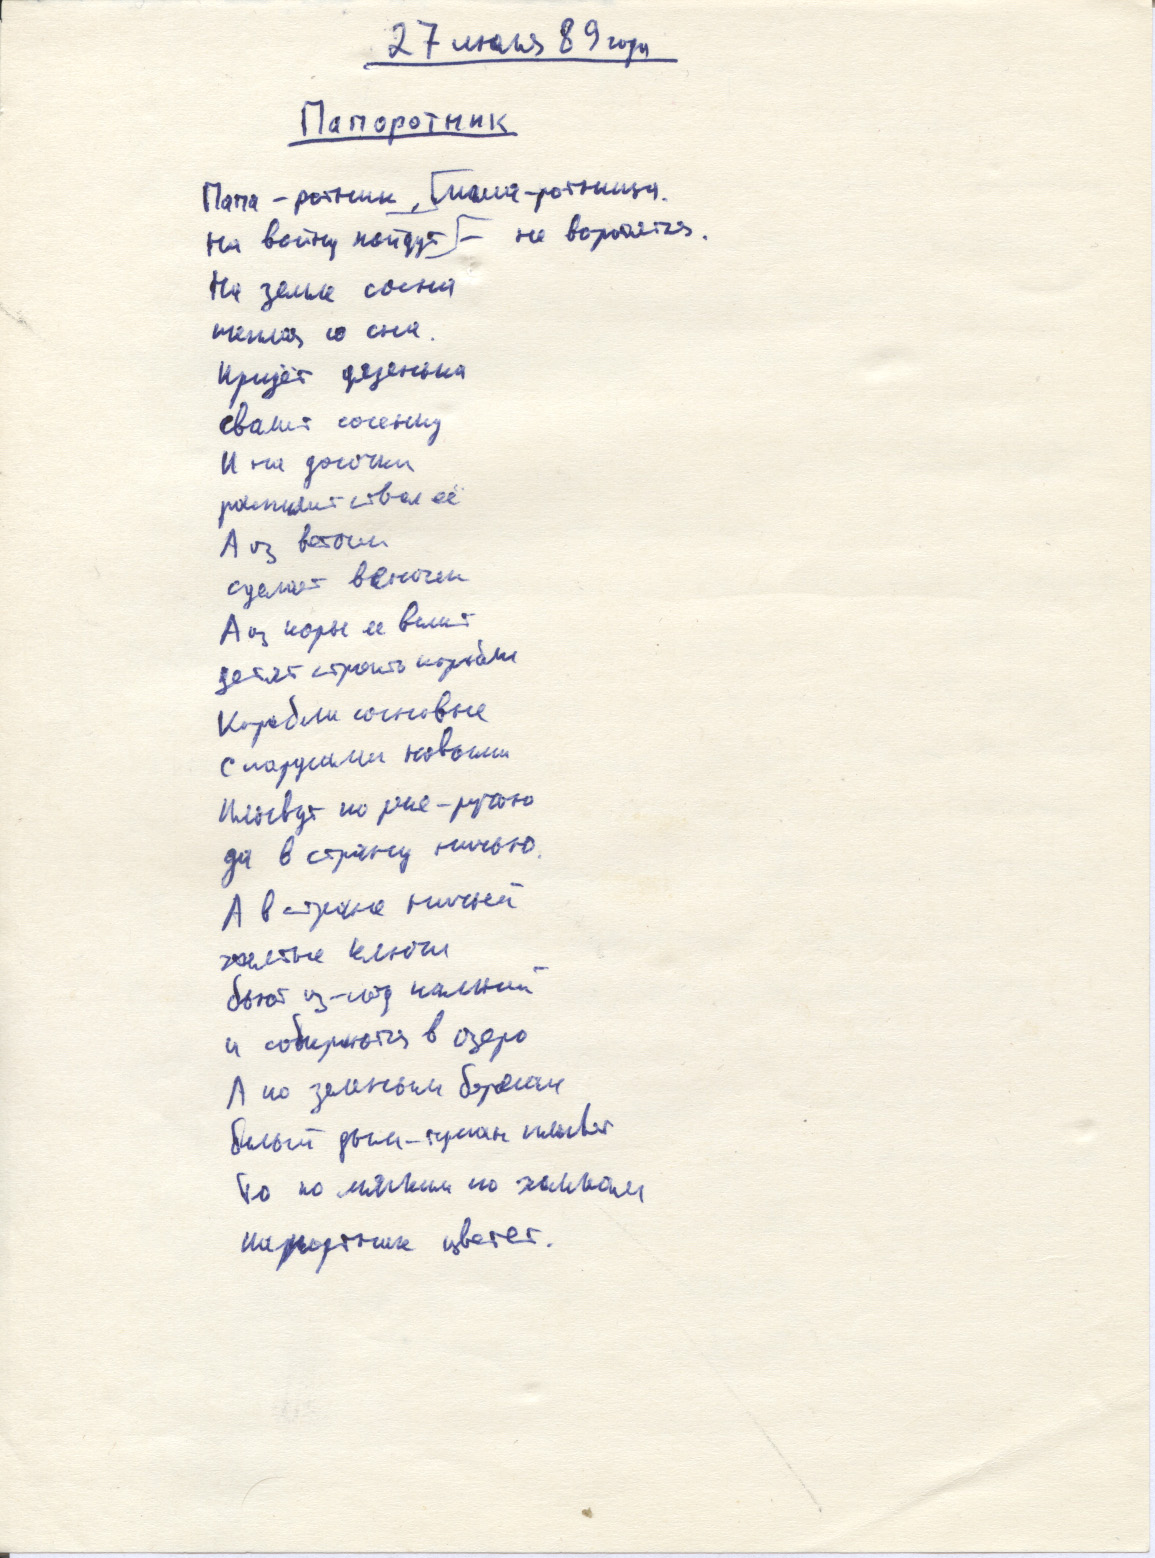 27 июля 89 года
Папоротник
Папа - ротник, мама-ротница.
На войну пойдут - не воротятся.
На земле сосна
теплая со сна.
Придёт дяденька
свалит сосенку
И на досочки
распилит ствол её
А из веточки
сделает веночки
А из коры ее велит
детят строить корабли
Корабли сосновые
С парусами новыми
Плывут по реке-ручью
да в страну ничью.
А в стране ничьей
желтые ключи
бьют из-под камней
и собираются в озеро
А по зеленым берегам
белый дым-туман плывет
То по мягким по холмам
папоротник цветет.